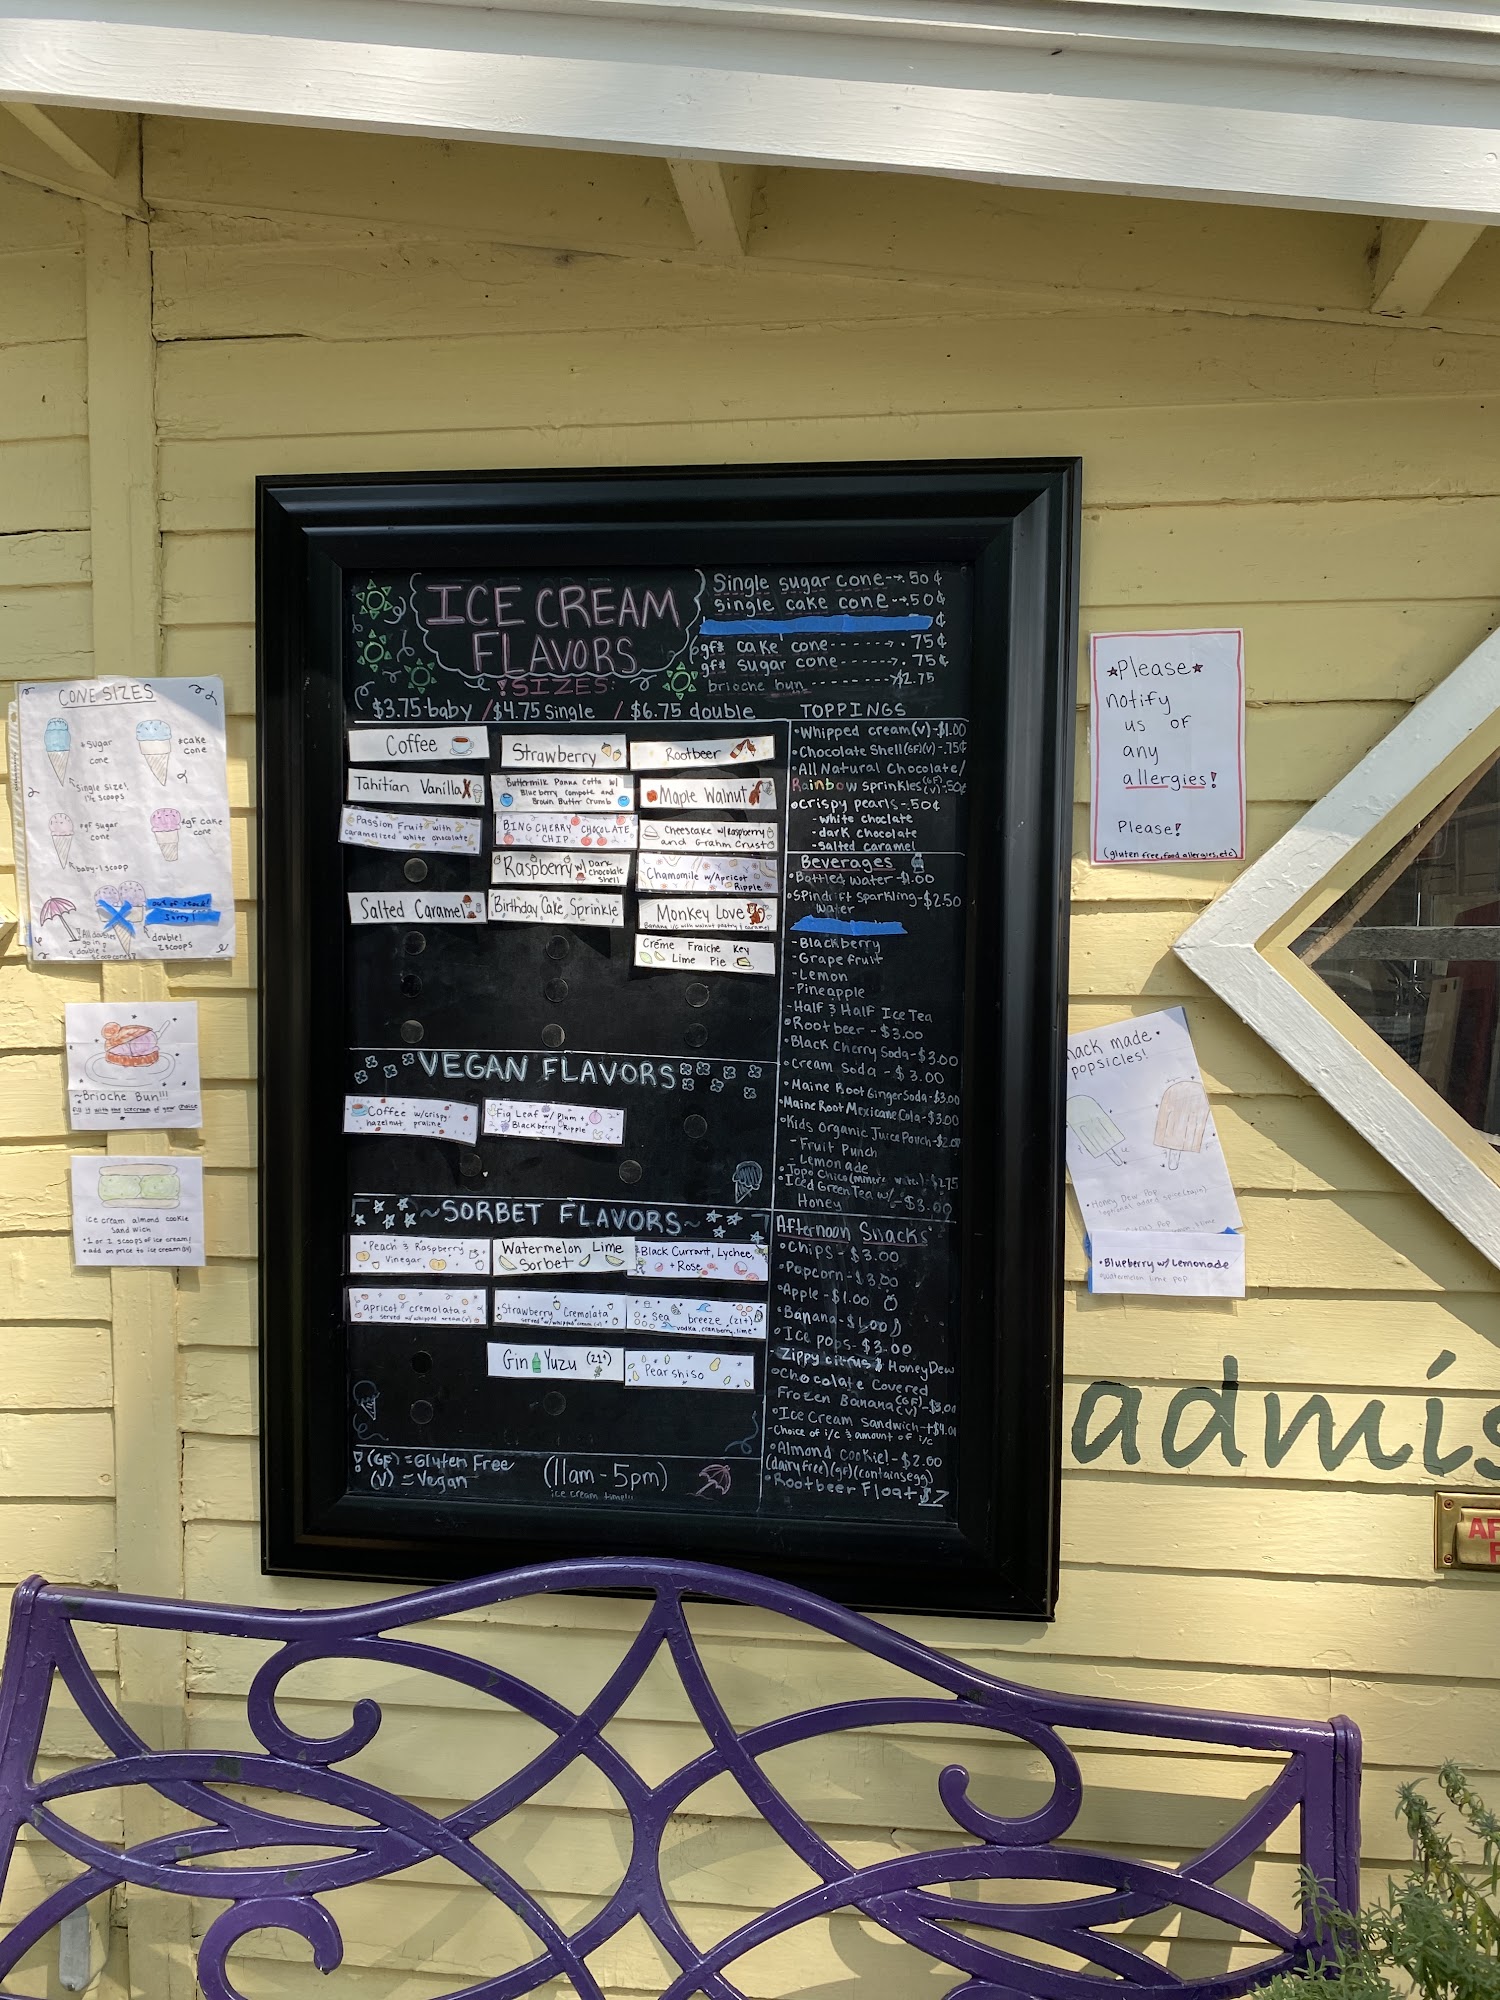 ICE CREAM
FLAVORS
SIZES:
$3.75-baby / $4.75 single / $6.75 double
Single sugar cone--→.50¢
single cake cone--→.50¢
¢
gf* cake cone------→.75¢
gf* sugar cone-----→.75¢
brioche bun--------→$2.75
Coffee
Strawberry
Rootbeer
Tahitian Vanilla
Buttermilk Panna Cotta w/
Blueberry Compote and
Brown Butter Crumb
Maple Walnut
Passion Fruit with
caramelized white chocolate
BING CHERRY CHOCOLATE
CHIP
Cheescake w/Raspberry
and Grahm Crust
Raspberry w/ Dark
chocolate
Shell
Chamomile w/Apricot
Ripple
Salted Caramel
Birthday Cake Sprinkle
Monkey Love
Banana i/c with walnut pastry & caramel
Créme Fraiche Key
Lime Pie
VEGAN FLAVORS
Coffee w/crispy
hazelnut praline
Fig Leaf w/ Plum +
Blackberry Ripple
~SORBET FLAVORS~
Peach & Raspberry
Vinegar
Watermelon Lime
Sorbet
Black Currant, Lychee,
+ Rose
Apricot cremolata
served w/ whipped cream(v)
Strawberry Cremolata
served w/ whipped cream(v)
Sea breeze (21+)
vodka, cranberry, lime
Gin Yuzu (21+)
Pear shiso
(GF) = Gluten Free
(V) = Vegan
(11am-5pm)
ice cream time!!!
TOPPINGS
•Whipped cream(v)-$1.00
•Chocolate Shell(GF)(V)-.75¢
•All Natural Chocolate/
Rainbow sprinkles(GF)(V)-.50¢
•Crispy pearls-.50¢
-white choclate
-dark chocolate
-Salted caramel
Beverages
•Bottled water-$1.00
•Spindrift sparkling-$2.50
water
-Blackberry
-Grapefruit
-Lemon
-Pineapple
-Half & Half Ice Tea
•Root beer-$3.00
•Black Cherry Soda-$3.00
•Cream Soda-$3.00
•Maine Root Ginger Soda-$3.00
•Maine Root Mexicane Cola-$3.00
•Kids Organic Juice Pouch-$2.00
-Fruit Punch
-Lemonade
•Topo Chico $2.75
•Iced Green Tea w/-$3.00
Honey
Afternoon Snacks
•Chips-$3.00
•Popcorn-$3.00
•Apple-$1.00
•Banana-$1.00
•Ice pops-$3.00
-Zippy citrus & HoneyDew
•Chocolate Covered
Frozen Banana(GF)(V)-$3.00
•Ice Cream Sandwich-+$4.00
-Choice of i/c & amount of i/c
•Almond cookie!-$2.00
(dairy free)(gf)(contains egg)
•Rootbeer Float $7
CONE SIZES
*sugar
cone
*cake
cone
single size!
1½ scoops
*gf sugar
cone
*gf cake
cone
baby-1 scoop
out of stock!
Sorry!
All doubles
go in
double
scoop cones
double!
2 scoops
~Brioche Bun!!!
fill it with the icecream of your choice
ice cream almond cookie
sandwich
*1 or 2 scoops of ice cream!
*add on price to ice cream($4)
*Please*
notify
us of
any
allergies!
Please!
(gluten free, food allergies, etc)
made
popsicles!
•Honey Dew Pop
•Blueberry w/ Lemonade
watermelon lime pop
admis